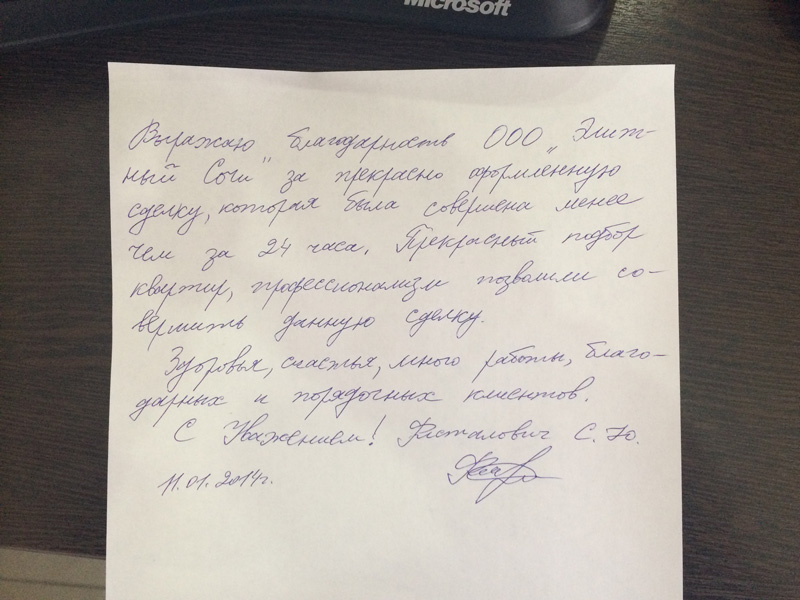 Microsoft
Выражаю благодарность ООО „Элит-
ный Сочи" за прекрасно оформленную
сделку, которая была совершена менее
чем за 24 часа. Прекрасный подбор
квартир, профессионализм позволили со-
вершить данную сделку.
Здоровья, счастья, много работы, благо-
дарных и порядочных клиентов.
С Уважением! С. Ю.
11.01.2014г.